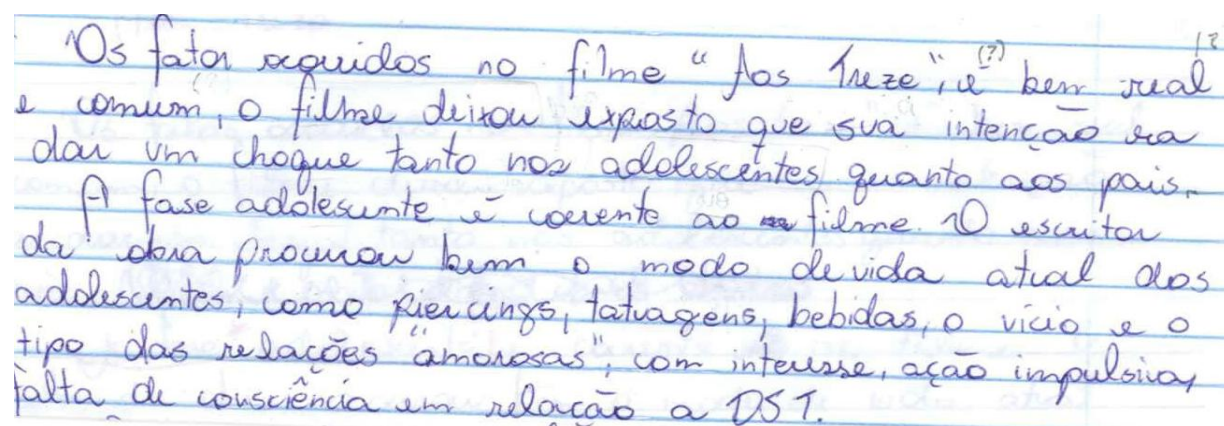 Os fator seguidos no filme "Aos Treze", é (?) bem real
e comum, o filme deixou exposto que sua intenção era
dar um choque tanto nos adolescentes, quanto aos pais.
A fase adolescente é coerente ao filme. O escritor
da obra procurou bem o modo de vida atual dos
adolescentes, como piercings, tatuagens, bebidas, o vício e o
tipo das relações "amorosas", com interesse, ação impulsiva,
falta de consciência em relação a DST.